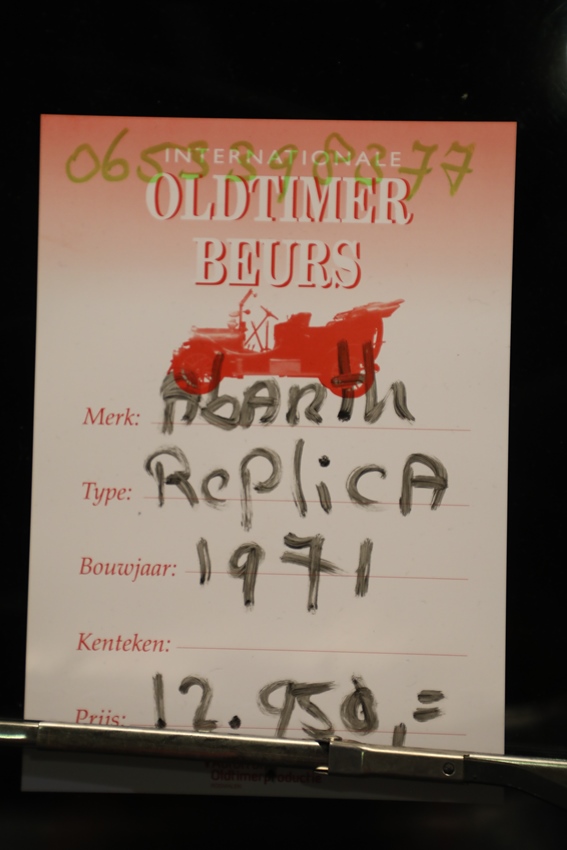 INTERNATIONALE
OLDTIMER
BEURS
Merk: AbARTH
Type: RePlicA
Bouwjaar: 1971
Kenteken:
Prijs: 12.950,=
Oldtimerproductie